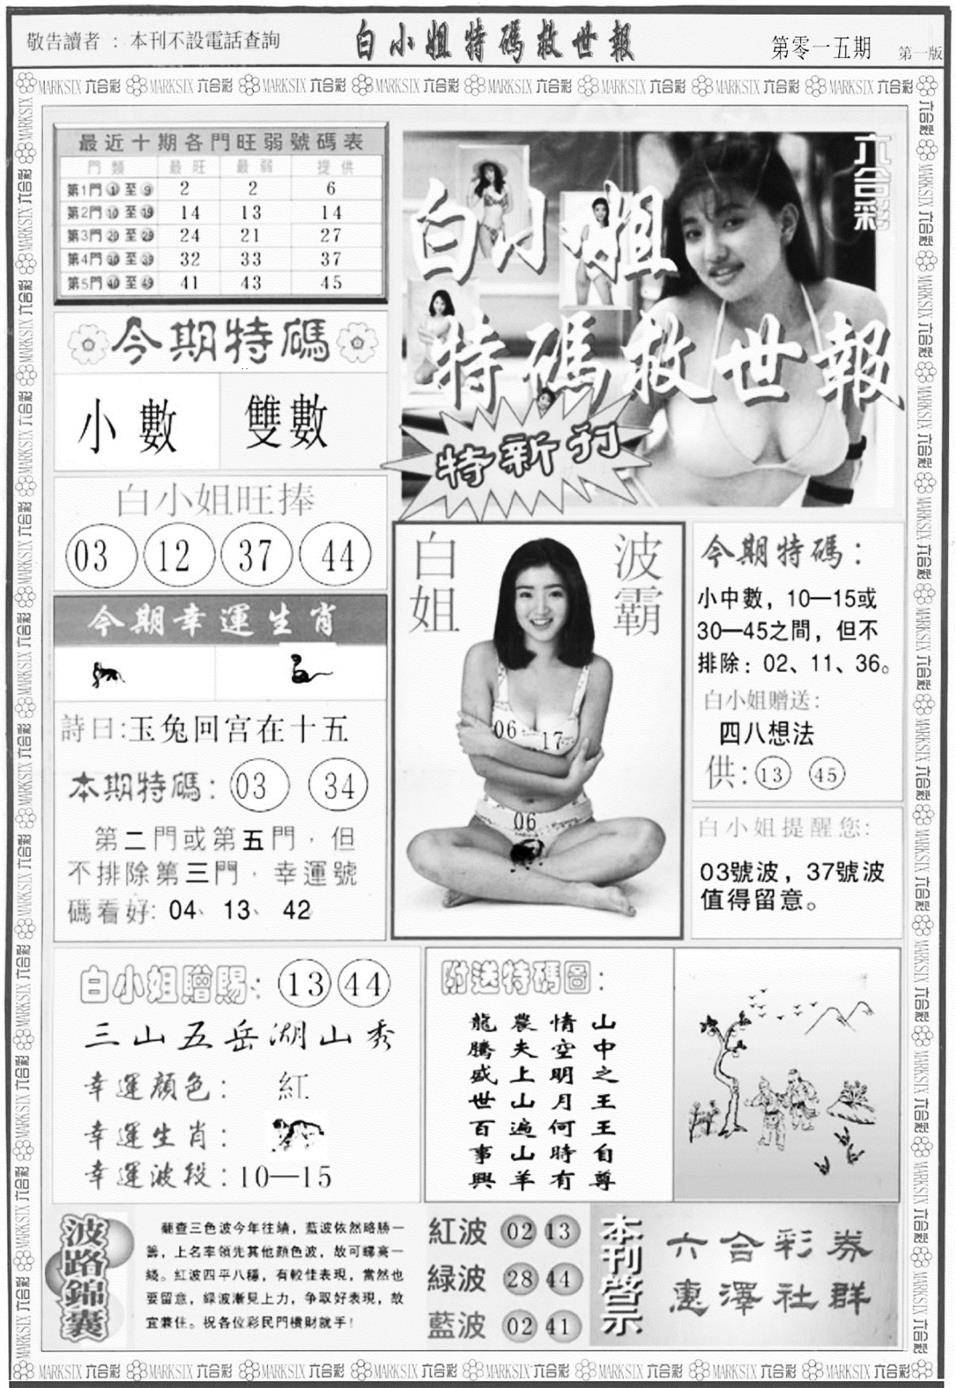 敬告讀者：本刊不設電話查詢
白小姐特碼救世報
第零一五期
第一版
MARKSIX 六合彩
最近十期各門旺弱號碼表
門類 最旺 最弱 提供
第1門 ① 至 ⑨ 2 2 6
第2門 ⑩ 至 ⑲ 14 13 14
第3門 ⑳ 至 ㉙ 24 21 27
第4門 ㉚ 至 ㊴ 32 33 37
第5門 ㊵ 至 ㊾ 41 43 45
六合彩
白小姐
特碼救世報
特新刊
今期特碼
小數 雙數
白小姐旺捧
03 12 37 44
今期幸運生肖
詩曰:玉兔回宮在十五
本期特碼: 03 34
第二門或第五門，但
不排除第三門，幸運號
碼看好: 04、13、42
白姐
波霸
06 17
06
今期特碼：
小中數，10—15或
30—45之間，但不
排除：02、11、36。
白小姐贈送:
四八想法
供: 13 45
白小姐提醒您:
03號波，37號波
值得留意。
白小姐贈賜: 13 44
三山五岳湖山秀
幸運顏色: 紅
幸運生肖:
幸運波段:10—15
附送特碼圖:
山中之王王自尊
情空明月何時有
農夫上山遍山羊
龍騰盛世百事興
波路錦囊
翻查三色波今年往績，藍波依然略勝一
籌，上名率領先其他顏色波，故可睇高一
綫。紅波四平八穩，有較佳表現，當然也
要留意，綠波漸見上力，爭取好表現，故
宜兼住。祝各位彩民門橫財就手！
紅波 02 13
緑波 28 44
藍波 02 41
本刊啓示
六合彩券
惠澤社群